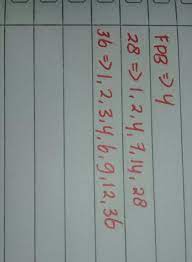 FPB => 4
28 => 1, 2, 4, 7, 14, 28
36 => 1, 2, 3, 4, 6, 9, 12, 36